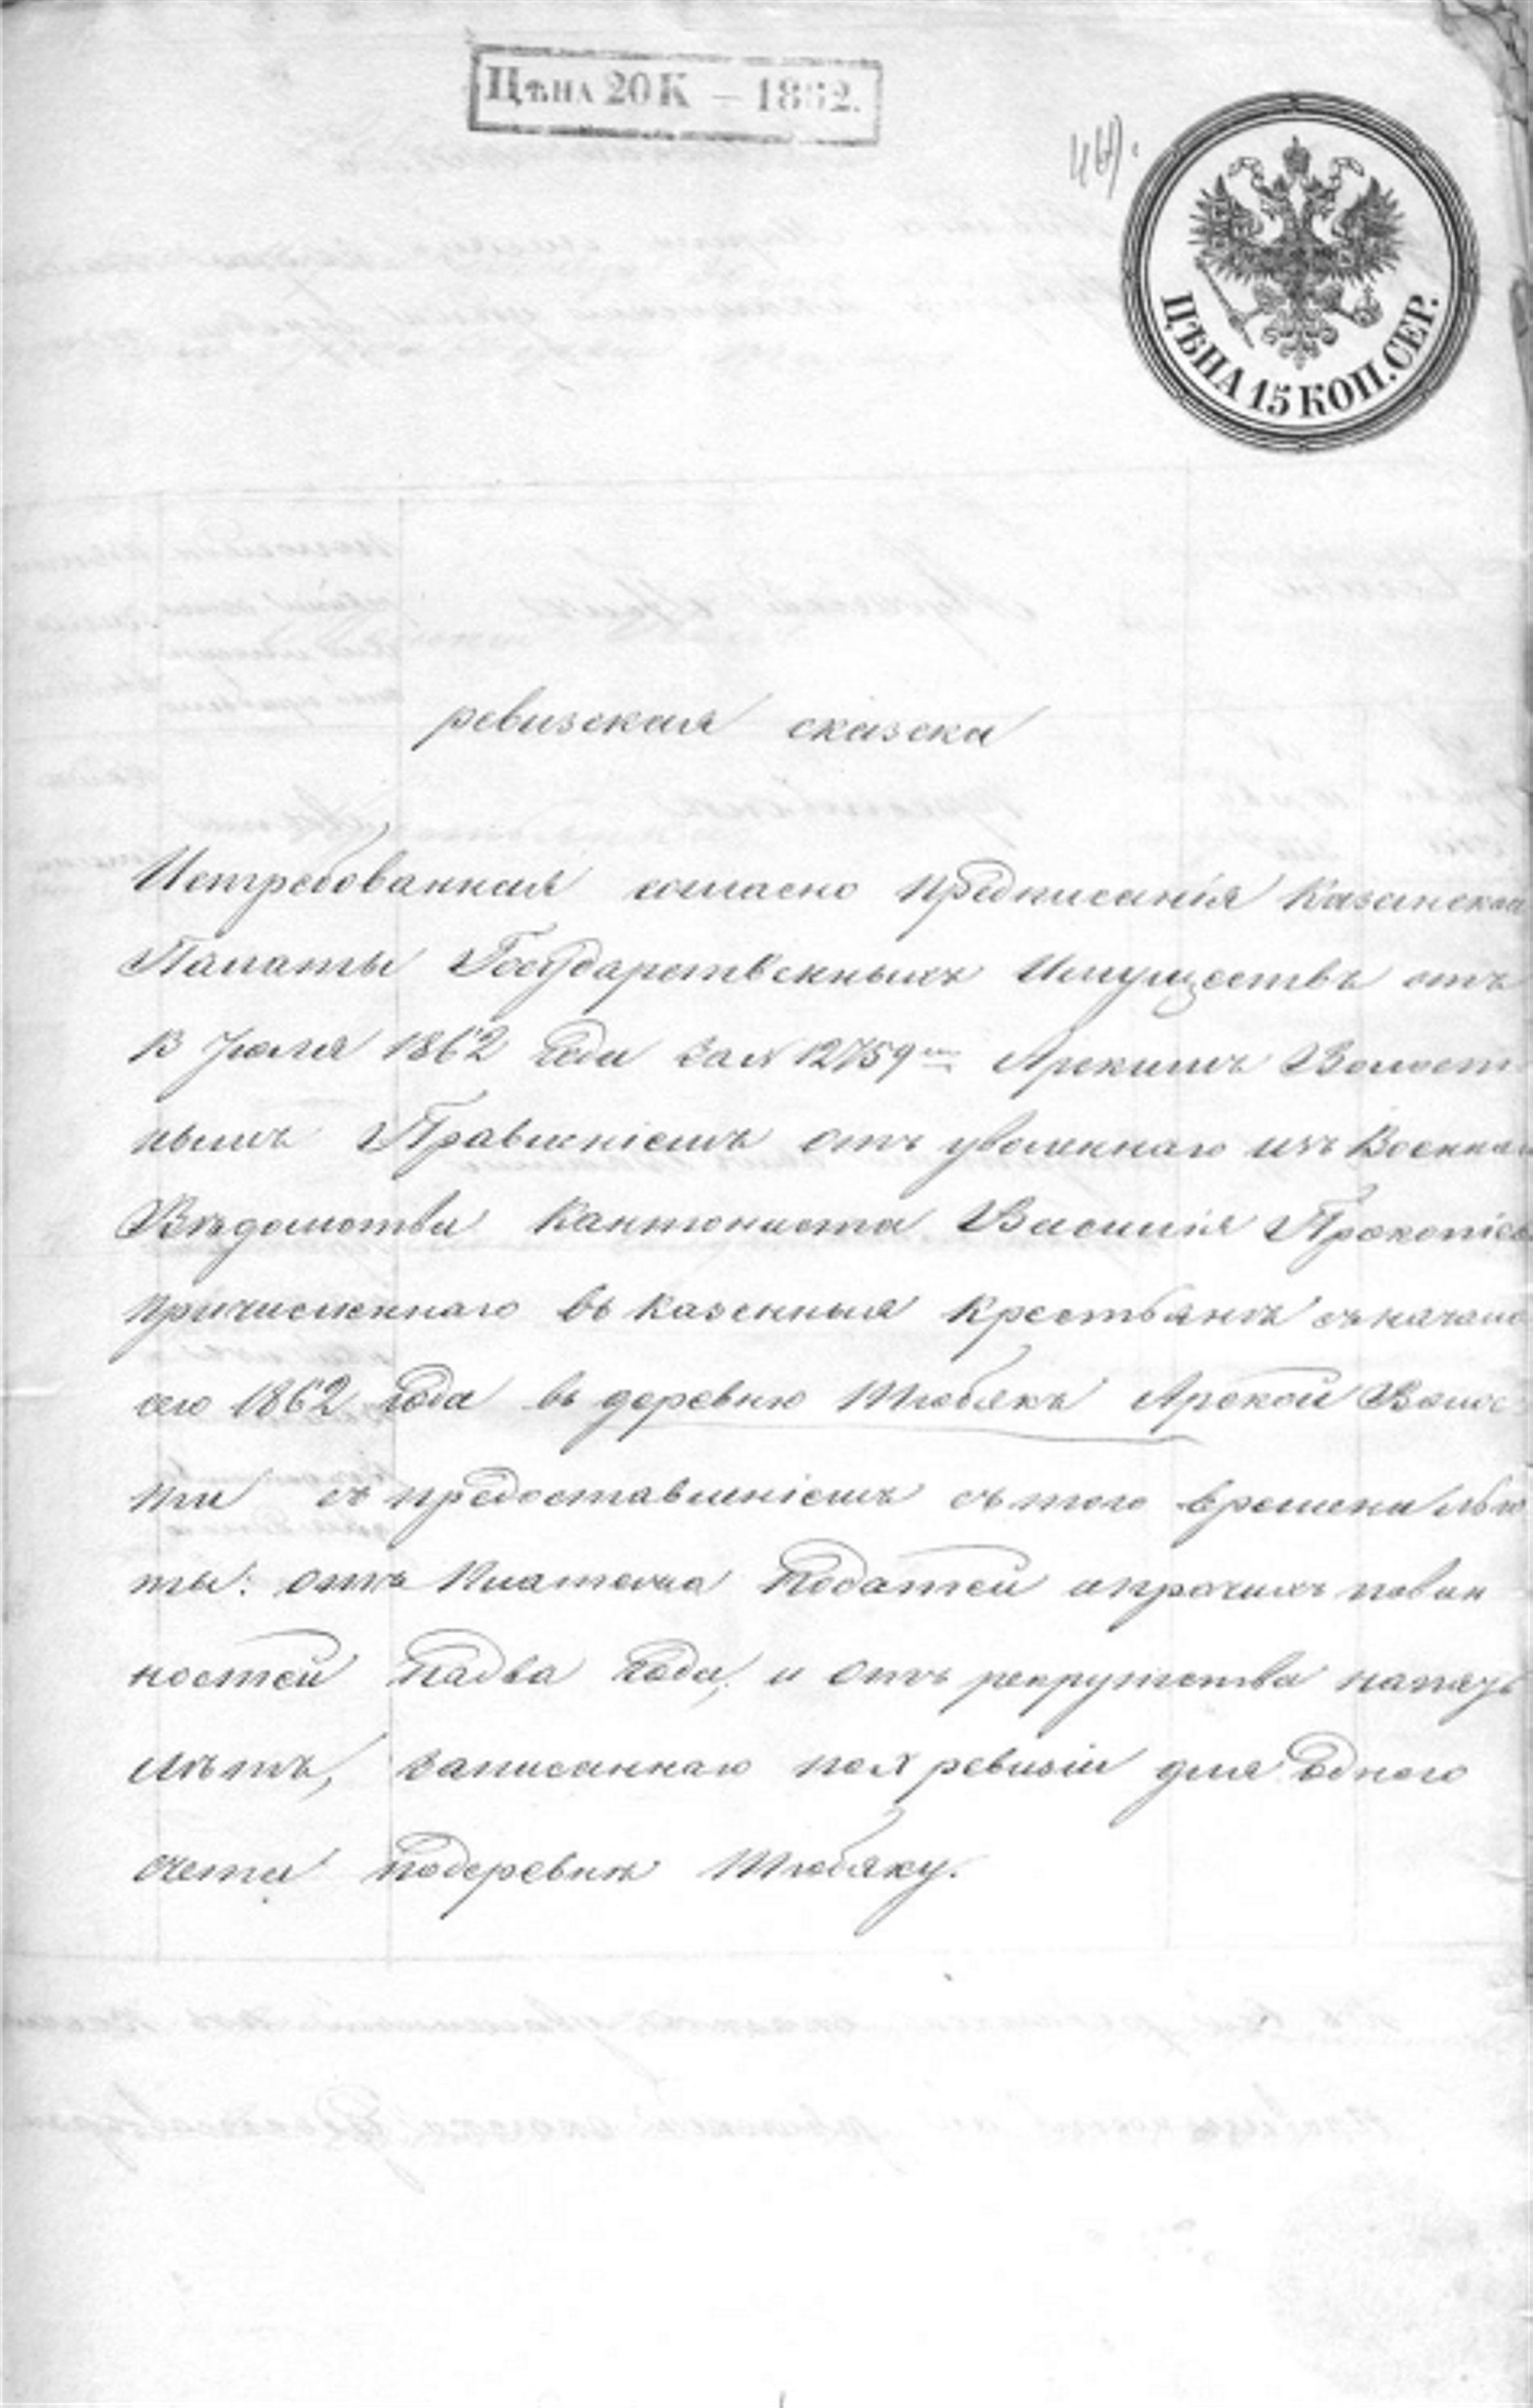 ЦѢНА 20 К — 1862.
ЦѢНА 15 КОП. СЕР.
ревизская сказска
Истребованная согласно предписанія Казанской
Палаты Государственныхъ Имуществъ отъ
13 Іюля 1862 года за N 12759 Арскимъ Волост
нымъ Правленіемъ отъ уволеннаго изъ Военнаго
Вѣдомства Кантониста Василія Прокопіева
причисленнаго въ казенныя крестьянъ съ начала
сего 1862 года въ деревню Тюбякъ Арской Волос
ти съ предоставленіемъ съ того времени льго
ты: отъ платежа податей и прочихъ повин
ностей на два года, и отъ рекрутства на
лѣтъ, записаннаго по X ревизіи для одного
счета по деревнѣ Тюбяку.